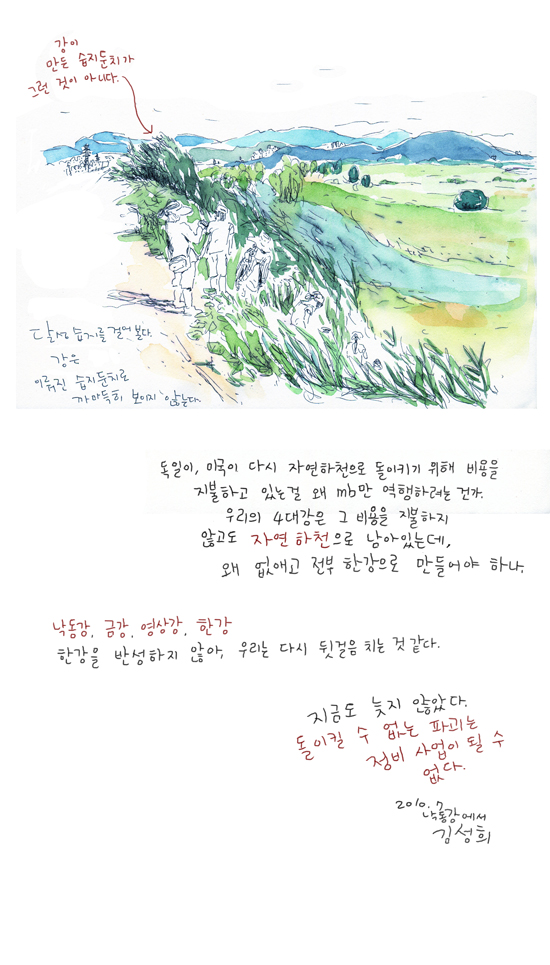 강이
만든 습지둔치가
그런 것이 아니다.
달성 습지를 걸어본다.
강은
이뤄진 습지둔치로
까마득히 보이지 않는다.
독일이, 미국이 다시 자연하천으로 돌이키기 위해 비용을
지불하고 있는걸 왜 mb만 역행하려는 건가.
우리의 4대강은 그 비용을 지불하지
않고도 자연 하천으로 남아있는데,
왜 없애고 전부 한강으로 만들어야 하나.
낙동강, 금강, 영상강, 한강
한강을 반성하지 않아, 우리는 다시 뒷걸음 치는 것 같다.
지금도 늦지 않았다.
돌이킬 수 없는 파괴는
정비 사업이 될 수
없다.
2010.7
낙동강에서
김성희